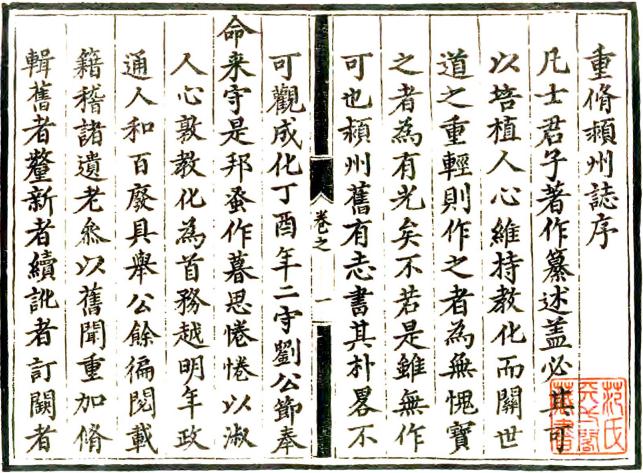 重脩潁州誌序
凡士君子著作纂述盖必其可
以培植人心維持教化而關世
道之重輕則作之者為無愧寶
之者為有光矣不若是雖無作
可也潁州舊有志書其朴畧不
卷之 一
可觀成化丁酉年二守劉公節奉
命来守是邦蚤作暮思惓惓以淑
人心敦教化為首務越明年政
通人和百廢具舉公餘徧閱載
籍稽諸遺老叅以舊聞重加脩
輯舊者釐新者續訛者訂闕者
范氏
天一閣
藏書